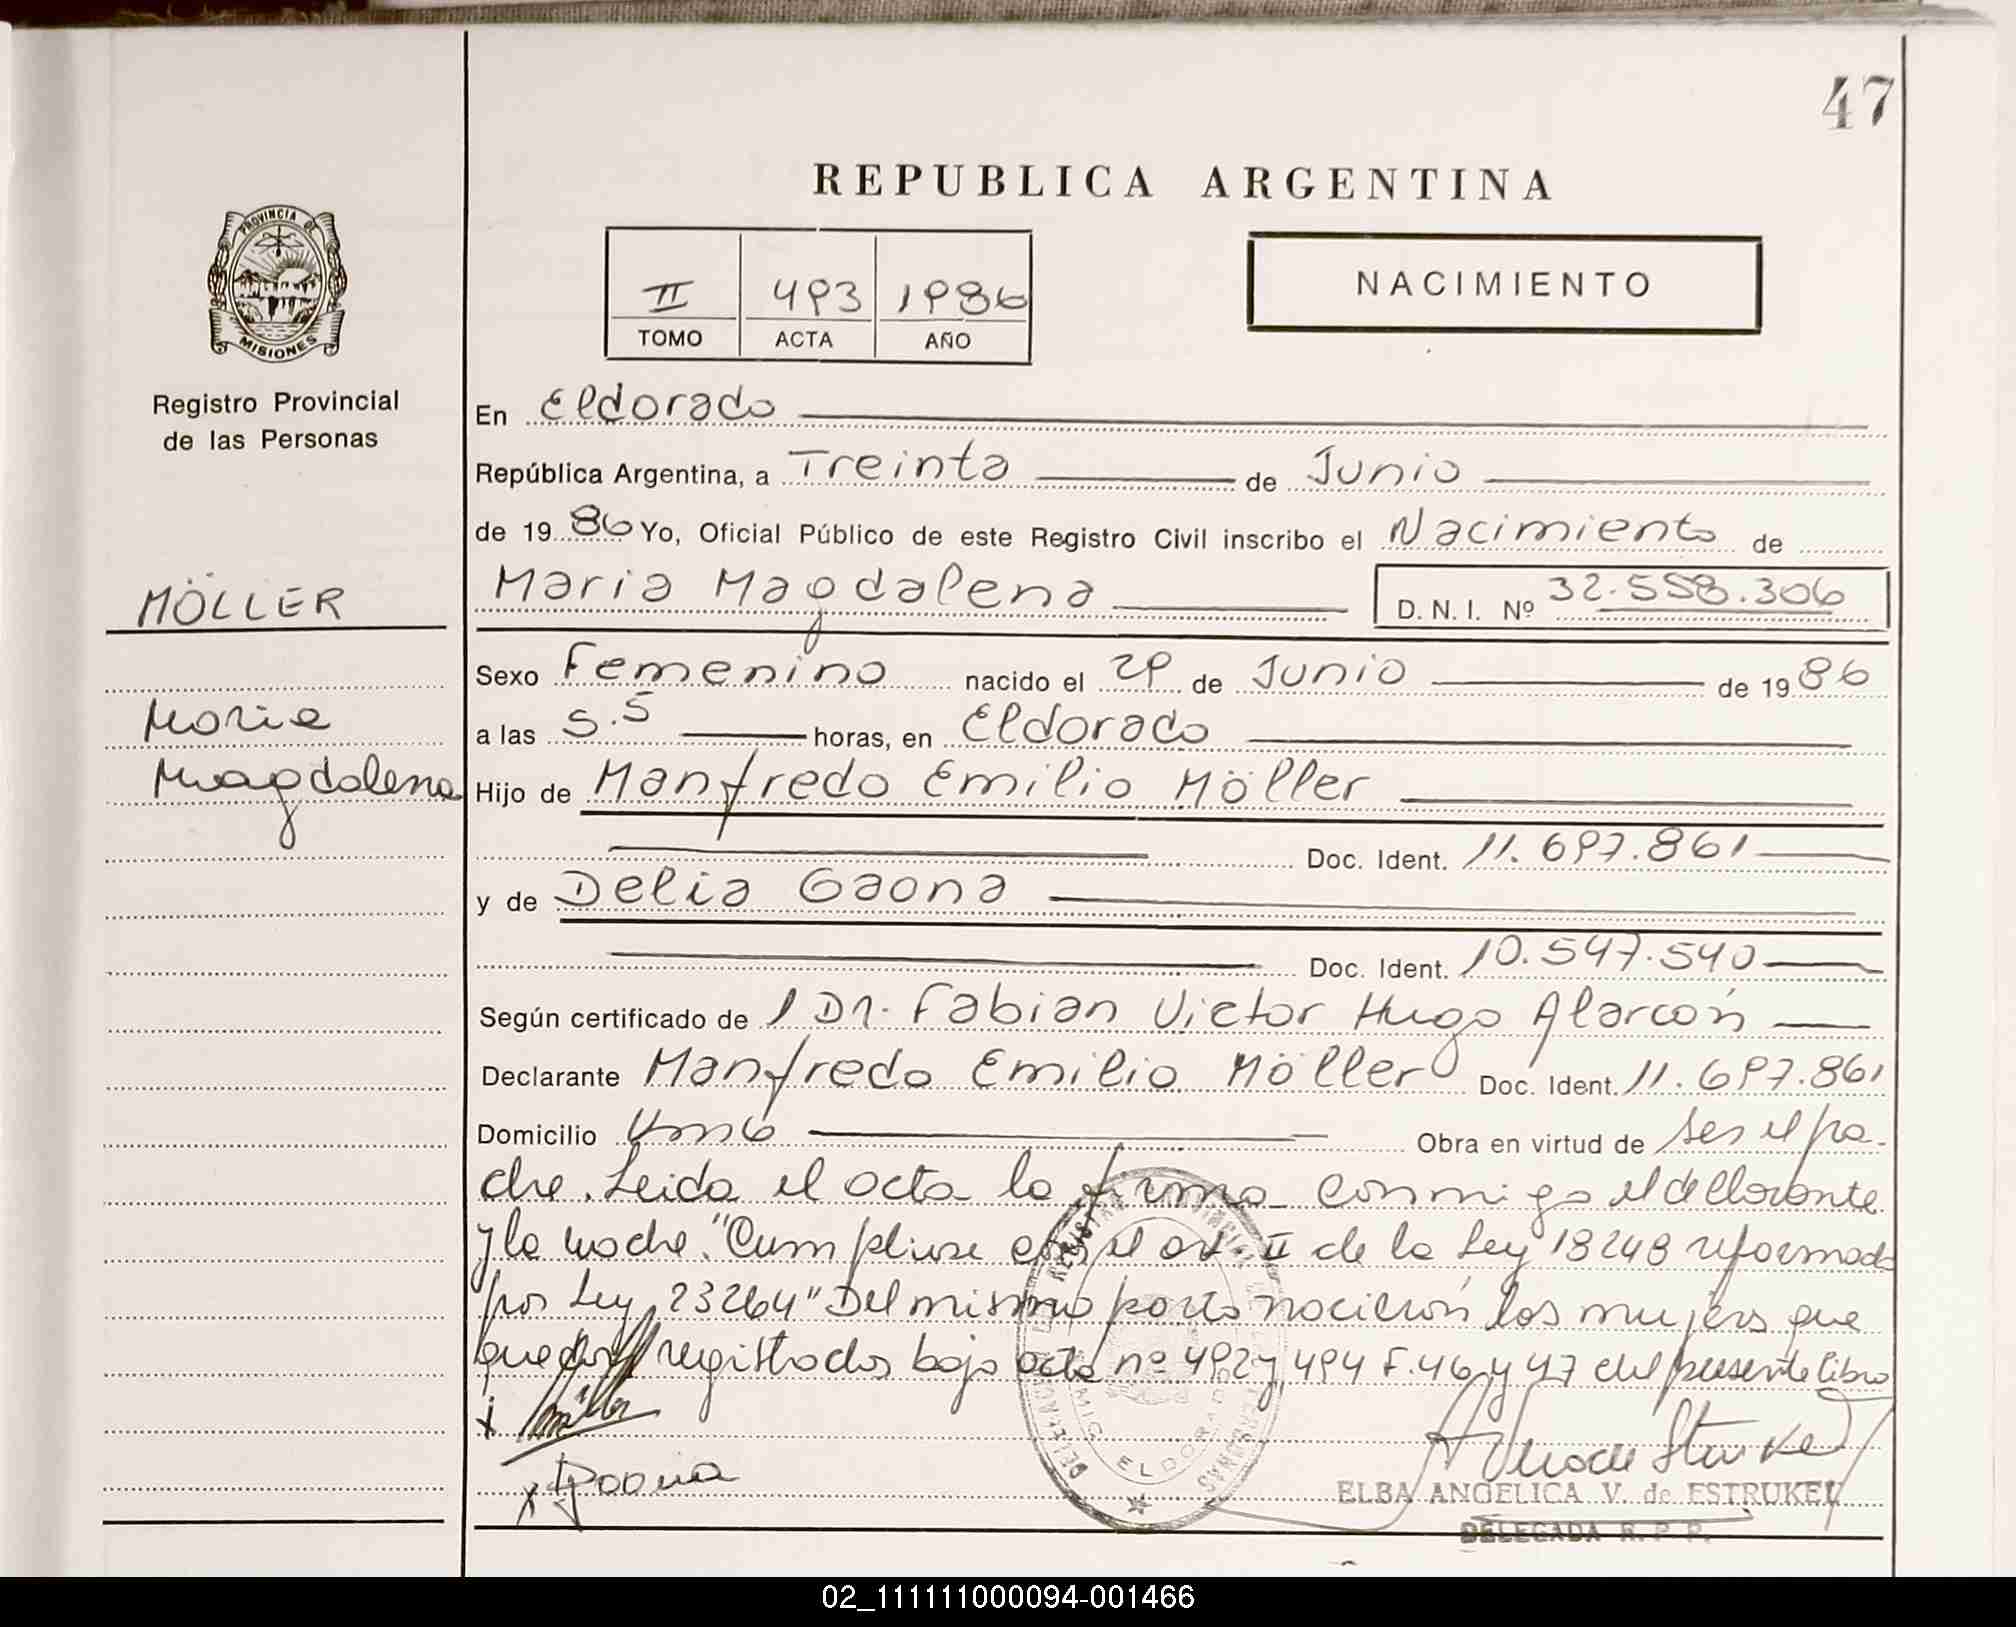 47
REPUBLICA ARGENTINA
PROVINCIA DE
MISIONES
Registro Provincial
de las Personas
MÖLLER
Maria
Magdalena
II 493 1986
TOMO ACTA AÑO
NACIMIENTO
En Eldorado
República Argentina, a Treinta de Junio
de 1986 Yo, Oficial Público de este Registro Civil inscribo el Nacimiento de
Maria Magdalena D. N. I. Nº 32.558.306
Sexo Femenino nacido el 29 de Junio de 1986
a las 5.5 horas, en Eldorado
Hijo de Manfredo Emilio Möller
Doc. Ident. 11.697.861
y de Delia Gaona
Doc. Ident. 10.547.540
Según certificado de l Dr. Fabian Victor Hugo Alarcón
Declarante Manfredo Emilio Möller Doc. Ident. 11.697.861
Domicilio Km 6 Obra en virtud de ser el pa-
dre. Leida el acta la firma conmigo el declarante
y la madre. "Cumpliose con el art II de la Ley 18248 reformada
por Ley 23264" Del mismo parto nacieron las mujeres que
quedan registradas bajo acta nº 492 y 494 F. 46 y 47 del presente libro
x Möller
x Gaona
ELDORADO
ELBA ANGELICA V. de ESTRUKEL
DELEGADA R. P. P.
02_111111000094-001466